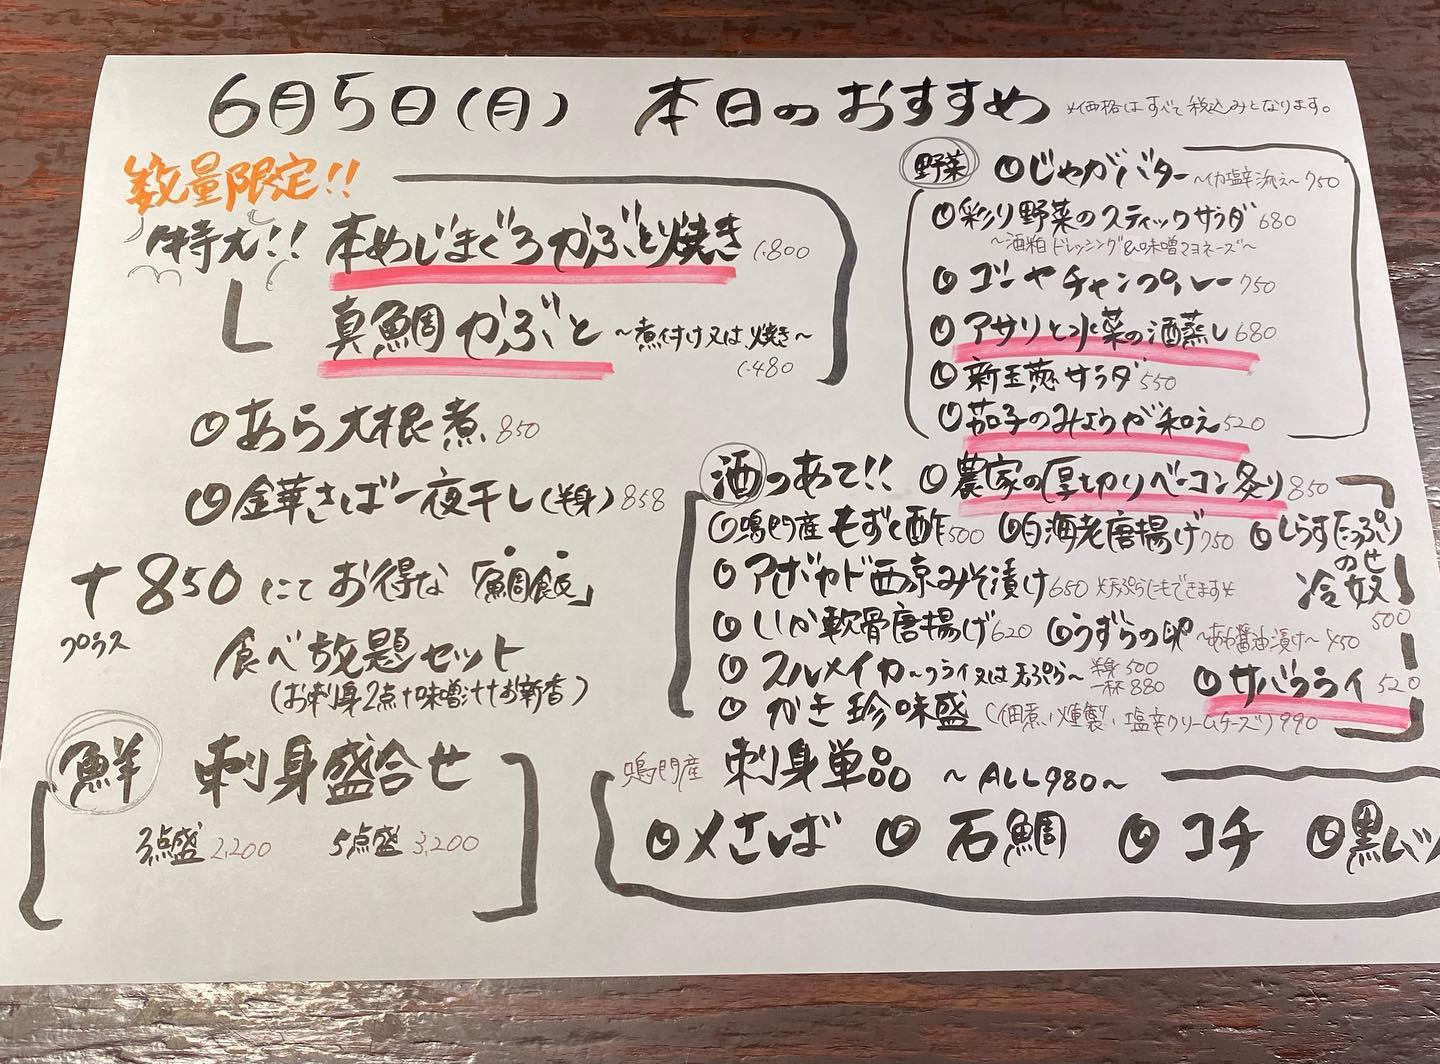 6月5日(月) 本日のおすすめ ※価格はすべて税込みとなります。
数量限定!!
特大!! 本めじまぐろかぶと焼き 1,800
真鯛かぶと ~煮付け又は焼き~
1,480
◎あら大根煮 850
◎金華さば一夜干し(半身) 858
+850にてお得な「鯛飯」
プラス
食べ放題セット
(お刺身2点+味噌汁+お新香)
鮮 刺身盛合せ
3点盛 2,200 5点盛 3,200
野菜 ◎じゃがバター ~イカ塩辛添え~ 750
◎彩り野菜のスティックサラダ 680
~酒粕ドレッシング&味噌マヨネーズ~
◎ゴーヤチャンプルー 750
◎アサリと水菜の酒蒸し 680
◎新玉葱サラダ 550
◎茄子のみょうが和え 520
酒のあて!! ◎農家の厚切りベーコン炙り 850
◎鳴門産もずく酢 500 ◎白海老唐揚げ 750 ◎しらすたっぷり
のせ
冷奴
500
◎アボカド西京みそ漬け 650 ※天ぷらにもできます※
◎いか軟骨唐揚げ 620 ◎うずらの卵 ~醤油漬け~ 450
◎スルメイカ ~フライ又は天ぷら~ 半身 500
一杯 880
◎サバフライ 520
◎かき珍味盛 (佃煮、燻製、塩辛クリームチーズ) 990
鳴門産 刺身単品 ~ALL980~
◎〆さば ◎石鯛 ◎コチ ◎黒ムツ